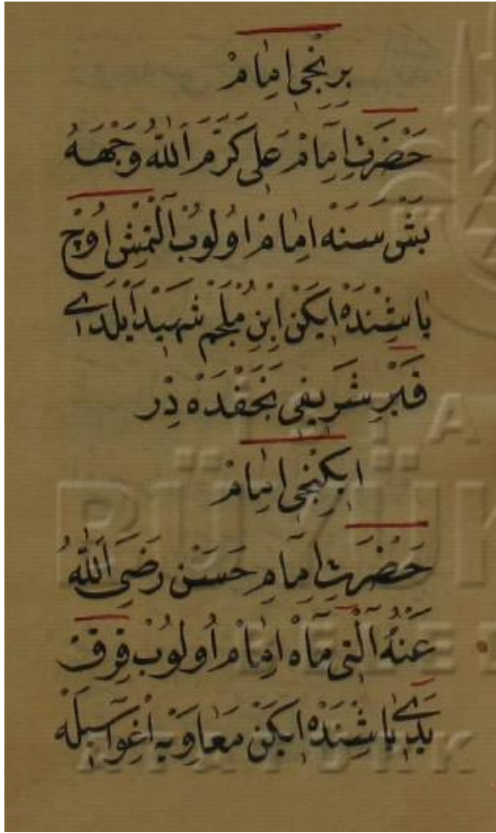 بِرِنْجِى اِمَامْ
حَضْرَتِ اِمَامْ عَلِى كَرَّمَ اَللّٰهُ وَجْهَهُ
بَشْ سَنَه اِمَامْ اوُلُوبْ اَلْتْمِشْ اوُچْ
يَاشِنْدَه اِيكَنْ اِبْنِ مُلْجَمْ شَهِيدْ اَيْلَدِى
قَبْرِ شَرِيفِى نَجَفْدَه دِرْ
اِيكِنْجِى اِمَامْ
حَضْرَتِ اِمَامِ حَسَنْ رَضِىَ اَللّٰهُ
عَنْهُ اَلْتِى مَاه اِمَامْ اُولُوبْ قِرْقْ
يَدِى يَاشِنْدَه اِيكَنْ مُعَاوِيَه اِغْوَاسِيلَه